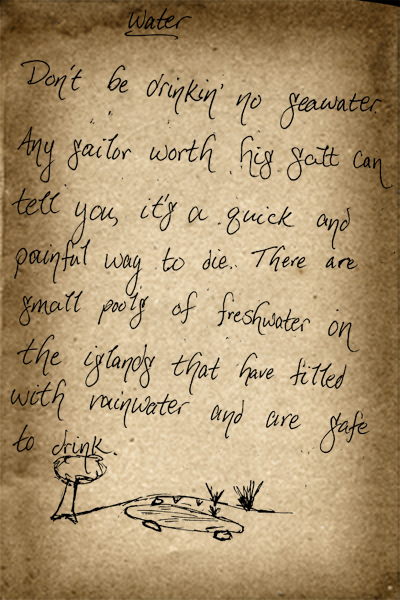 Water
Don't be drinkin' no seawater.
Any sailor worth his salt can
tell you, it's a quick and
painful way to die. There are
small pools of freshwater on
the islands that have filled
with rainwater and are safe
to drink.